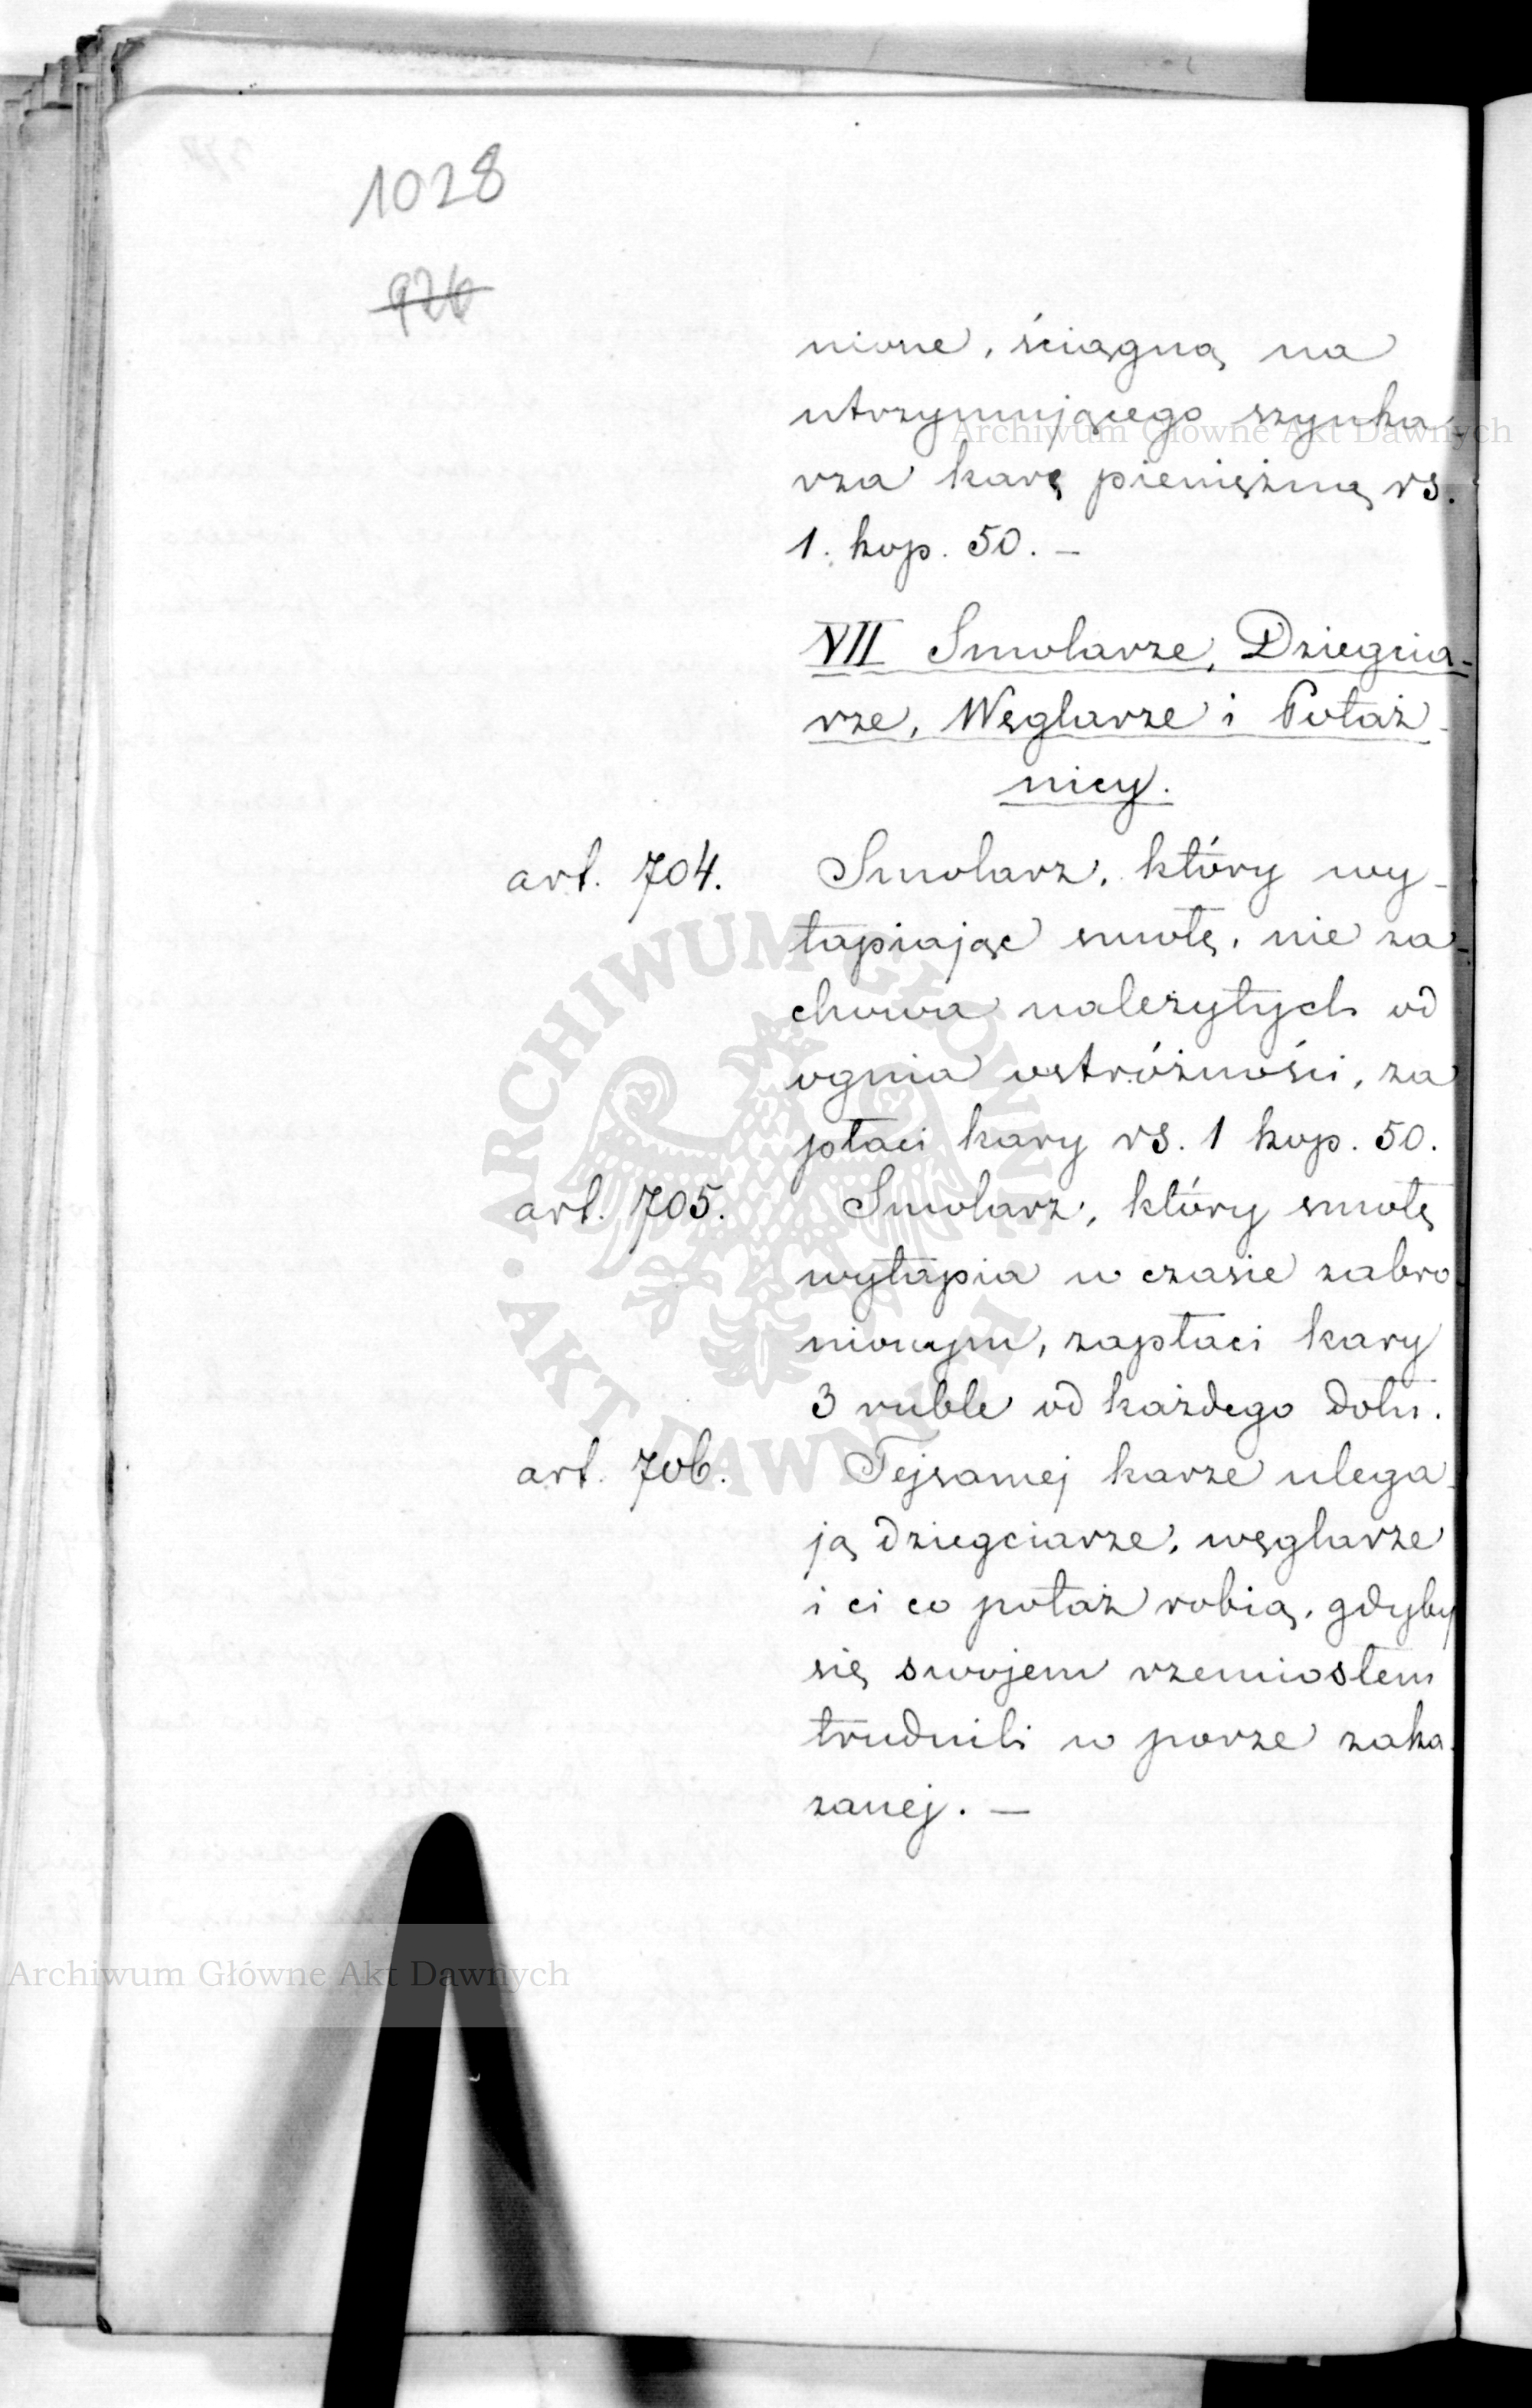 1028
926
nione, ściągną na
utrzymującego szynka-
rza karę pieniężną rs.
1. kop. 50. —
VII Smolarze, Dziegcia-
rze, Węglarze i Potaż-
nicy.
art. 704. Smolarz, który wy-
tapiając smołę, nie za-
chowa należytych od
ognia ostróżności, za
płaci kary rs. 1 kop. 50.
art. 705. Smolarz, który smołę
wytapia w czasie zabro
nionym, zapłaci kary
3 ruble od każdego dołu.
art. 706. Tejsamej karze ulega-
ją dziegciarze, węglarze
i ci co potaż robią, gdyby
się swojem rzemiosłem
trudnili w porze zaka-
zanej. —
Archiwum Główne Akt Dawnych
ARCHIWUM GŁÓWNE
AKT DAWNYCH
Archiwum Główne Akt Dawnych